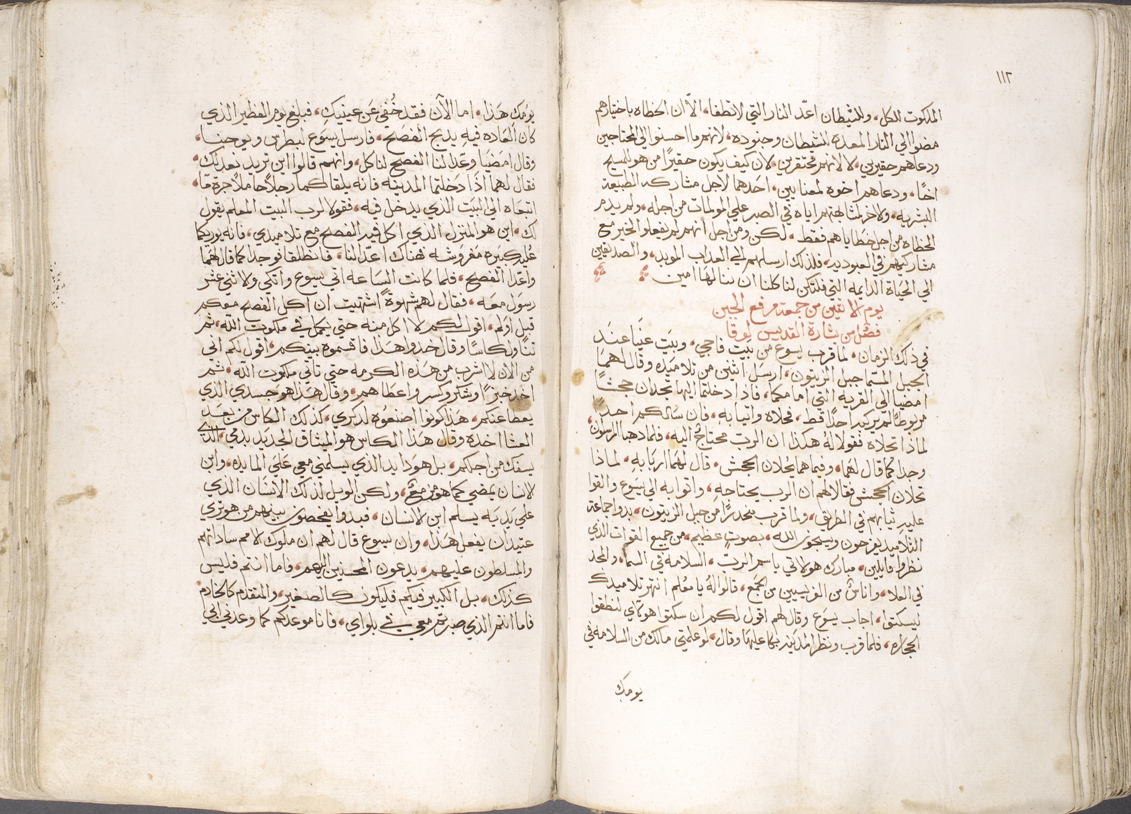 ١١٢
الملكوت للكل، وللشيطان اعد النار التي لا تطفا، الا ان الخطاه باختيارهم
مضوا الى النار المعده للشيطان وجنوده، لانهم ما احسنوا الى المحتاجين
ودعاهم حقيرين، لا لانهم محتقرين، لان كيف يكون حقيرًا من هو للمسيح
اخًا، ودعاهم اخوه لمعنايين، احدهما لاجل مشاركه الطبيعة
البشريه، والاخر لمشابهتهم اياه في الصبر على المولمات من اجله، ولم يذم
الخطاه من اجل خطاياهم فقط، لكن ومن اجل انهم لم يفعلوا الخير مع
مشاركيهم في العبوديه، فلذلك ارسلهم الى العداب الموبد، والصديقين
الى الحياة الدايمه التي فلتكن لنا كلنا ان ننالها امين
يوم الاثنين من جمعة مرفع الجبن
فصل من بشارة القديس لوقا
في ذلك الزمان، لما قرب يسوع من بيت فاجي، وبيت عنيا عند
الجبل المسما جبل الزيتون، ارسل اثنين من تلاميذه وقال لهما
امضيا الى القرية التي امامكما، فاذا دخلتما اليها تجدان جحشًا
مربوطًا لم يركبه احدًا قط، فحلاه واتيا به، فان سالكم احد
لماذا تحلاه فقولا له هكذا ان الرب محتاج اليه، فلما دهبا الرسولان
وجدا كما قال لهما، وفيما هما يحلان الجحش، قال لهما اربابه، لماذا
تحلان الجحش، فقالا لهم ان الرب يحتاجه، واتوا به الى يسوع والقوا
عليه ثيابهم في الطريق، ولما قرب منحدرًا من جبل الزيتون، بدوا جماعة
التلاميذ يفرحون ويسبحون الله، بصوت عظيم، من جميع القوات الذي
نظروا قايلين، مبارك هو الاتي باسم الرب، السلامه في السما، والمجد
في العلا، واناسٌ من الفريسيين من الجمع، قالوا له يا معلم انتهر تلاميذك
ليسكتوا، اجاب يسوع وقال لهم اقول لكم ان سكتوا هولاي لنطقوا
الحجاره، فلما قرب ونظر المدينه بكا عليها وقال، لو علمتي مالك من السلامه في
يومك
يومك هذا، اما الآن فقد خُفي عن عينيك، فبلغ يوم الفطير الذي
كان العاده فيه يدبح الفصح، فارسل يسوع لبطرس ويوحنا،
وقال امضيا وعدا لنا الفصح لناكل، وانهم قالوا اين تريد نعد لك،
فقال لهما اذا دخلتما المدينه فانه يلقاكما رجلًا حاملًا جرة ما،
اتبعاه الى البيت الذي يدخل فيه، فقولا لرب البيت المعلم يقول
لك، اين هو المنزل الذي، اكل فيه الفصح مع تلاميذي، فانه يوريكما
عُليه كبيره مفروشه هناك اعدا لنا، فانطلقا فوجدا كما قال لهما
واعدا الفصح، فلما كانت الساعه اتى يسوع واتكى والاثنى عشر
رسول معه، فقال لهم شهوةً اشتهيت ان اكل الفصح معكم
قبل اولم، اقول لكم لا اكل منه حتى يكمل في ملكوت الله، ثم
تناول كاسًا وقال خدوا هذا فاقسموه بينكم، اقول لكم انى
من الان لا اشرب من هذه الكرمه حتى تاتي ملكوت الله، ثم
اخد خبزًا وشكر وكسر واعطاهم، وقال هذا هو جسدي الذي
يعطا عنكم، هذا كونوا اصنعوه لدكري، كذلك الكاس من بعد
العشا اخده وقال هذا الكاس هو الميثاق الجديد بدمي، الذي
يسفك من اجلكم، بل هودا يد الذي يسلمني معي على المايده، وابن
الانسان يمضي كما هو مزمع، ولكن الويل لذلك الانسان الذي
على يديه يسلم ابن الانسان، فبدوا يفحصون بينهم من هو ترى
عتيد ان يفعل هذا، وان يسوع قال لهم ان ملوك الامم ساداتهم
والمسلطون عليهم، يدعون المحسنين اليهم، فاما انتم فليس
كذلك، بل الكبير فيكم فليكون كالصغير، والمتقدم كالخادم
فاما انتم الذي صبرتم معي في بلواي، فانا موعدكم كما وعدني ابي